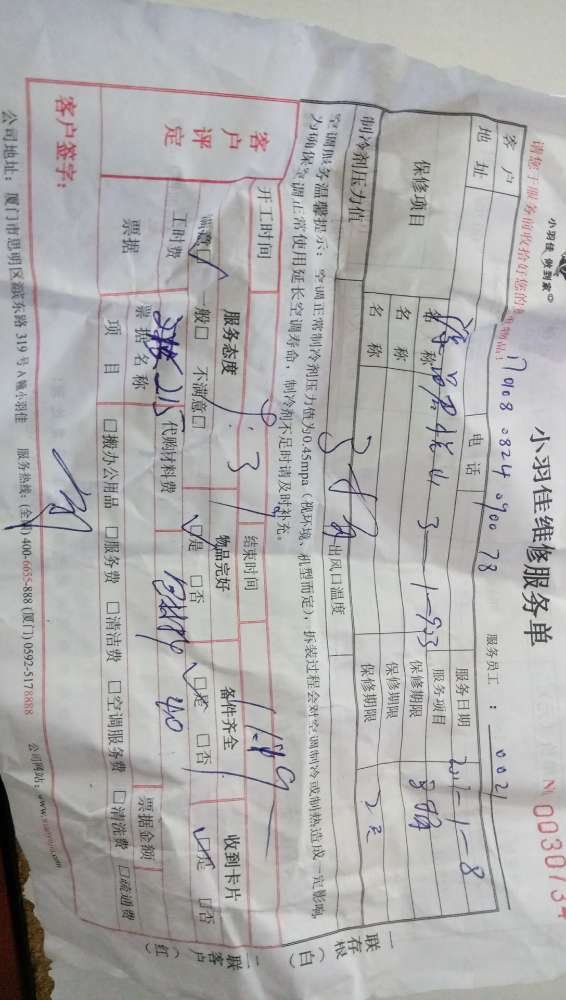 小羽佳 做到家
小羽佳维修服务单
№ 0030734
请您于服务前收拾好您的
服务员工：0021
170108 0824 0900 78
客户
地址
电话
服务日期
2017-1-8
3-1-903
保修项目
名称
服务项目
名称
保修期限
名称
保修期限
制冷剂压力值
出风口温度
空调服务温馨提示：空调正常制冷剂压力值为0.45mpa（视环境、机型而定），拆装过程会对空调制冷或制热造成一定影响，
为确保空调正常使用延长空调寿命，制冷剂不足时请及时补充。
开工时间
结束时间
客户评定
服务态度
物品完好
备件齐全
收到卡片
满意□ 一般□ 不满意□
□是 □否
□是 □否
□是 □否
工时费
215
代购材料费
40
票据
票据名称
票据金额
项目
□搬办公用品 □服务费 □清洁费 □空调服务费 □清洗费 □疏通费
客户签字：
公司地址：厦门市思明区
东路319号A
小羽佳 服务热线：(全国) 400-6655-888 (厦门) 0592-5178888
公司网站：
一联存根（白）
二联客户（红）